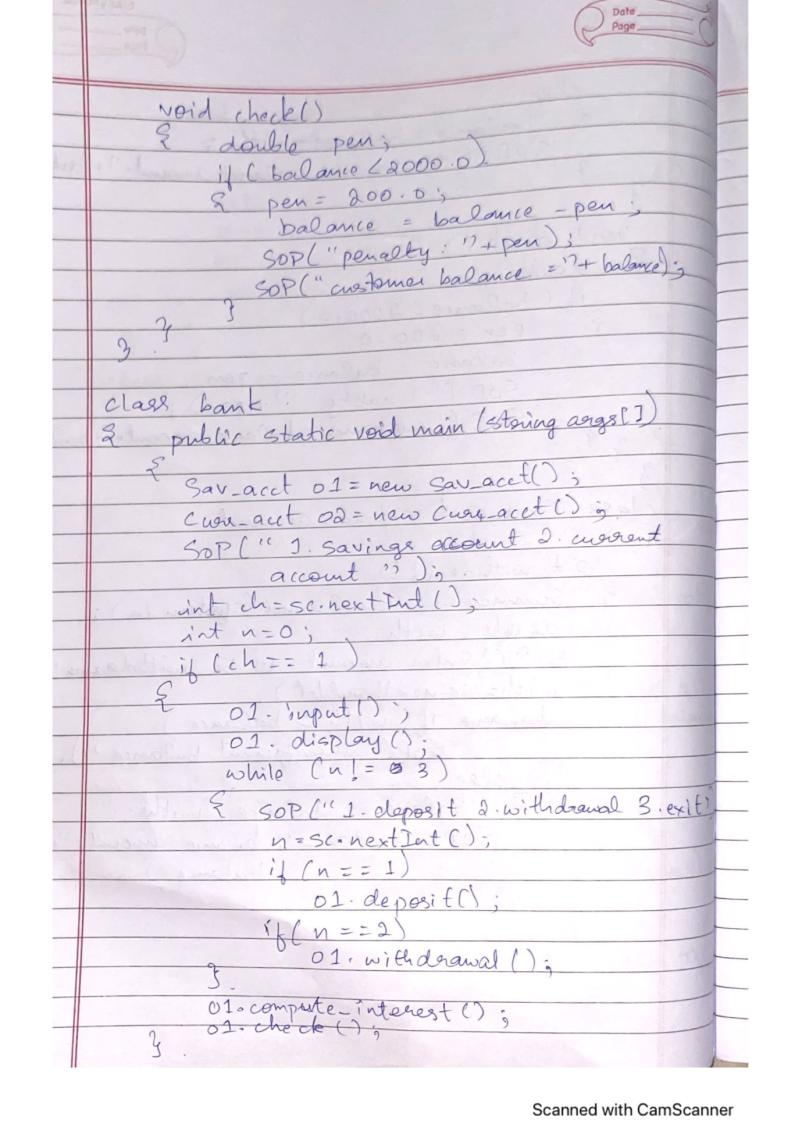 Date
Page
void check()
{ double pen;
if ( balance < 2000.0)
{ pen = 200.0;
balance = balance - pen;
SOP("penalty: "+pen);
SOP("customer balance ="+ balance);
}
}
}
class bank
{ public static void main (string args[])
{
Sav_acct o1 = new Sav_acct();
Curr_acct o2 = new Curr_acct();
SOP(" 1. Savings account 2. current
account ");
int ch = sc.nextInt();
int n=0;
if (ch == 1)
{
o1. input();
o1. display();
while (n! = 3)
{ SOP("1. deposit 2. withdrawal 3. exit"
n = sc.nextInt();
if (n == 1)
o1. deposit();
if( n == 2)
o1. withdrawal();
}
o1.compute_interest();
o1.check();
}
Scanned with CamScanner